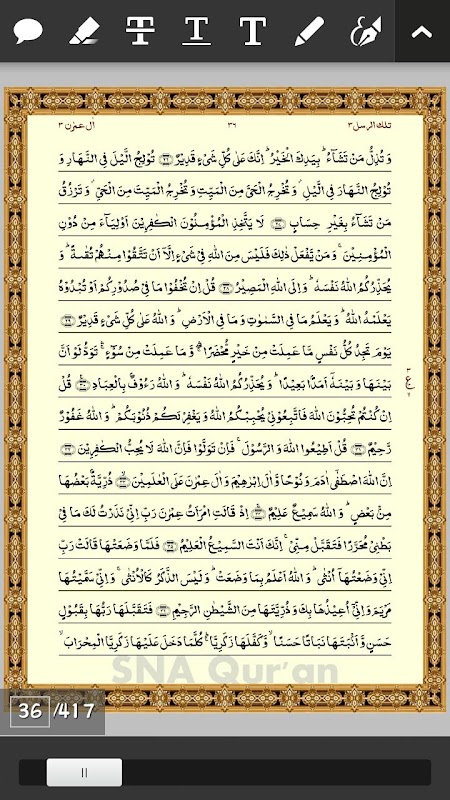 تلك الرسل ٣ ٣٦ اٰل عمرٰن ٣
وَتُذِلُّ مَنْ تَشَآءُ ؕ بِيَدِكَ الْخَيْرُ ؕ اِنَّكَ عَلٰى كُلِّ شَیْءٍ قَدِيْرٌ ﴿۲۶﴾ تُوْلِجُ الَّيْلَ فِي النَّهَارِ وَ
تُوْلِجُ النَّهَارَ فِي الَّيْلِ ؗ وَتُخْرِجُ الْحَيَّ مِنَ الْمَيِّتِ وَتُخْرِجُ الْمَيِّتَ مِنَ الْحَيِّ ؗ وَتَرْزُقُ
مَنْ تَشَآءُ بِغَيْرِ حِسَابٍ ﴿۲۷﴾ لَا يَتَّخِذِ الْمُؤْمِنُوْنَ الْكٰفِرِيْنَ اَوْلِيَآءَ مِنْ دُوْنِ
الْمُؤْمِنِيْنَ ۚ وَمَنْ يَّفْعَلْ ذٰلِكَ فَلَيْسَ مِنَ اللّٰهِ فِيْ شَیْءٍ اِلَّاۤ اَنْ تَتَّقُوْا مِنْهُمْ تُقٰىةً ؕ وَ
يُحَذِّرُكُمُ اللّٰهُ نَفْسَهٗ ؕ وَاِلَى اللّٰهِ الْمَصِيْرُ ﴿۲۸﴾ قُلْ اِنْ تُخْفُوْا مَا فِيْ صُدُوْرِكُمْ اَوْ تُبْدُوْهُ
يَعْلَمْهُ اللّٰهُ ؕ وَيَعْلَمُ مَا فِي السَّمٰوٰتِ وَمَا فِي الْاَرْضِ ؕ وَاللّٰهُ عَلٰى كُلِّ شَیْءٍ قَدِيْرٌ ﴿۲۹﴾
يَوْمَ تَجِدُ كُلُّ نَفْسٍ مَّا عَمِلَتْ مِنْ خَيْرٍ مُّحْضَرًا ۛۖ وَّمَا عَمِلَتْ مِنْ سُوْٓءٍ ۛۚ تَوَدُّ لَوْ اَنَّ
بَيْنَهَا وَبَيْنَهٗۤ اَمَدًۢا بَعِيْدًا ؕ وَيُحَذِّرُكُمُ اللّٰهُ نَفْسَهٗ ؕ وَاللّٰهُ رَءُوْفٌۢ بِالْعِبَادِ ﴿۳۰﴾ قُلْ
اِنْ كُنْتُمْ تُحِبُّوْنَ اللّٰهَ فَاتَّبِعُوْنِيْ يُحْبِبْكُمُ اللّٰهُ وَيَغْفِرْ لَكُمْ ذُنُوْبَكُمْ ؕ وَاللّٰهُ غَفُوْرٌ
رَّحِيْمٌ ﴿۳۱﴾ قُلْ اَطِيْعُوا اللّٰهَ وَالرَّسُوْلَ ۚ فَاِنْ تَوَلَّوْا فَاِنَّ اللّٰهَ لَا يُحِبُّ الْكٰفِرِيْنَ ﴿۳۲﴾
اِنَّ اللّٰهَ اصْطَفٰۤى اٰدَمَ وَنُوْحًا وَّاٰلَ اِبْرٰهِيْمَ وَاٰلَ عِمْرٰنَ عَلَى الْعٰلَمِيْنَ ﴿۳۳﴾ ذُرِّيَّةًۢ بَعْضُهَا
مِنْۢ بَعْضٍ ؕ وَاللّٰهُ سَمِيْعٌ عَلِيْمٌ ﴿۳۴﴾ اِذْ قَالَتِ امْرَاَتُ عِمْرٰنَ رَبِّ اِنِّيْ نَذَرْتُ لَكَ مَا فِيْ
بَطْنِيْ مُحَرَّرًا فَتَقَبَّلْ مِنِّيْ ۚ اِنَّكَ اَنْتَ السَّمِيْعُ الْعَلِيْمُ ﴿۳۵﴾ فَلَمَّا وَضَعَتْهَا قَالَتْ رَبِّ
اِنِّيْ وَضَعْتُهَاۤ اُنْثٰى ؕ وَاللّٰهُ اَعْلَمُ بِمَا وَضَعَتْ ؕ وَلَيْسَ الذَّكَرُ كَالْاُنْثٰى ۚ وَاِنِّيْ سَمَّيْتُهَا
مَرْيَمَ وَاِنِّيْۤ اُعِيْذُهَا بِكَ وَذُرِّيَّتَهَا مِنَ الشَّيْطٰنِ الرَّجِيْمِ ﴿۳۶﴾ فَتَقَبَّلَهَا رَبُّهَا بِقَبُوْلٍ
حَسَنٍ وَّاَنْۢبَتَهَا نَبَاتًا حَسَنًا ۙ وَّكَفَّلَهَا زَكَرِيَّا ؕ كُلَّمَا دَخَلَ عَلَيْهَا زَكَرِيَّا الْمِحْرَابَ ۙ
SNA Qur'an
36 /417